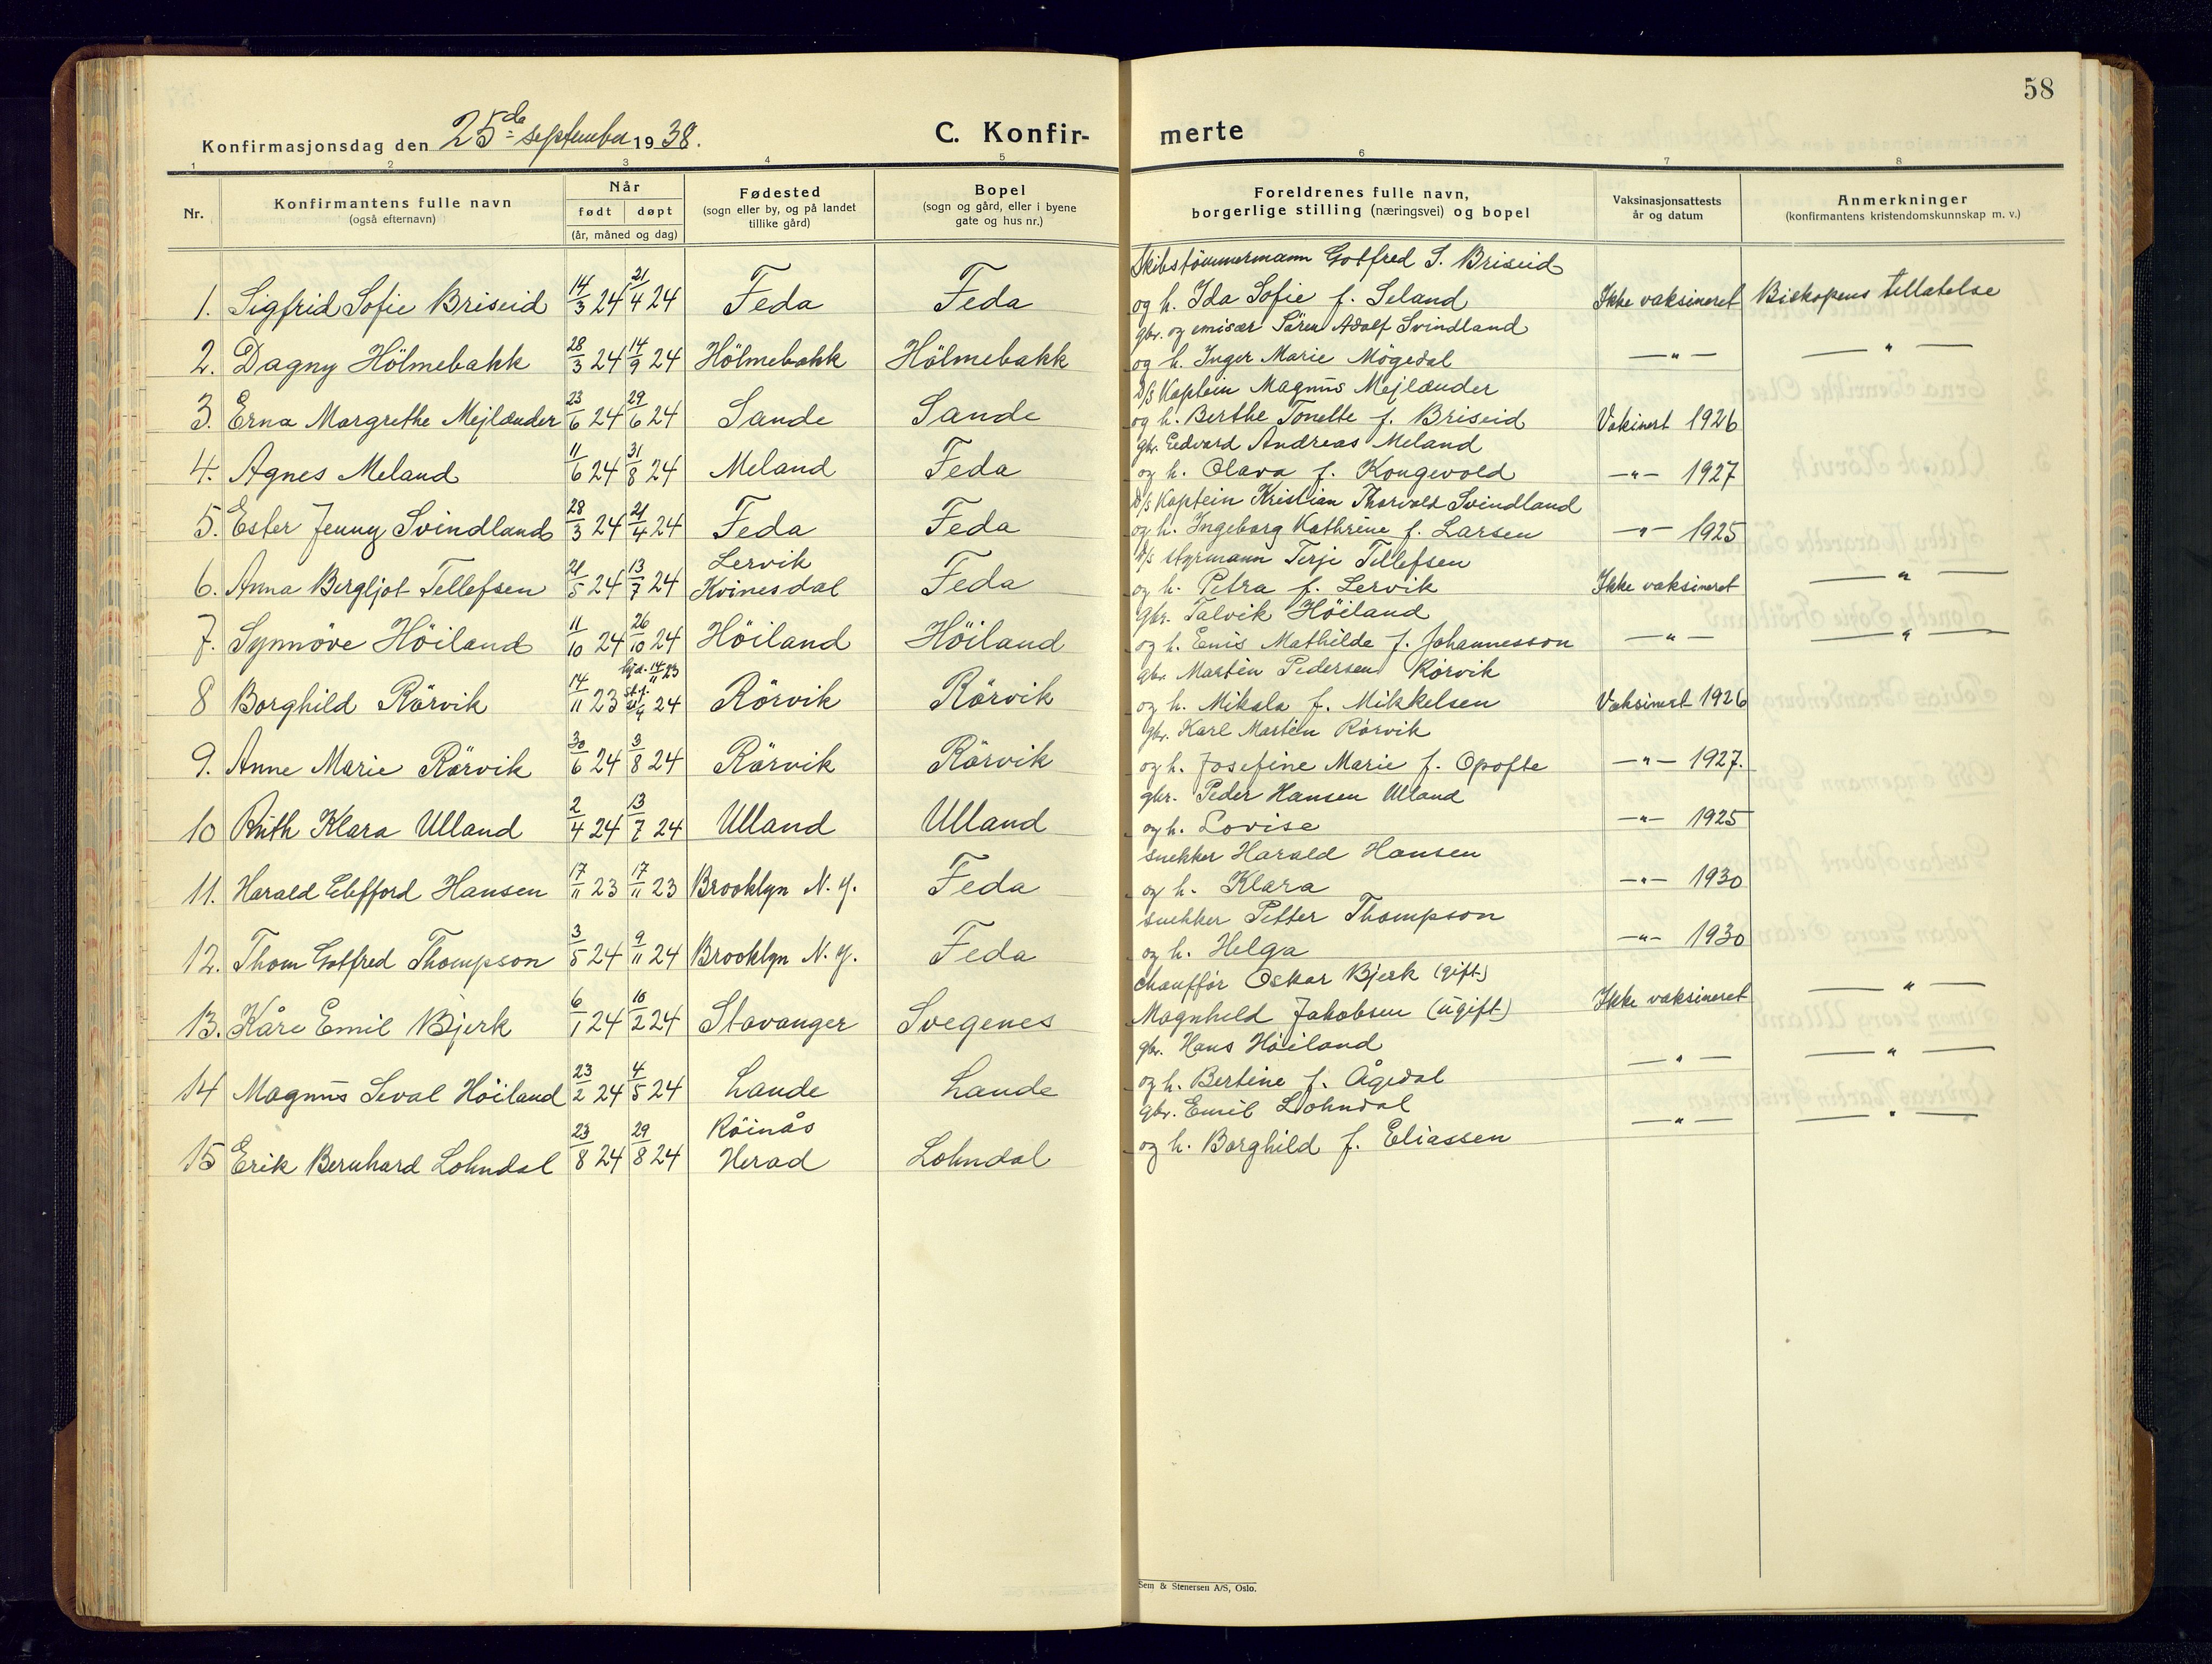 58
Konfirmasjonsdag den 25de september 1938.
C. Konfir-
merte
1 2 3 4 5 6 7 8
Nr.
Konfirmantens fulle navn
(også efternavn)
Når
født døpt
(år, måned og dag)
Fødested
(sogn eller by, og på landet
tillike gård)
Bopel
(sogn og gård, eller i byene
gate og hus nr.)
Foreldrenes fulle navn,
borgerlige stilling (næringsvei) og bopel
Vaksinasjonsattests
år og datum
Anmerkninger
(konfirmantens kristendomskunnskap m. v.)
Skibstömmermann Gotfred S. Briseid
1. Sigfrid Sofie Briseid 14/3 24 21/4 24 Feda Feda og h. Ida Sofie f. Seland Ikke vaksineret Biskopens tillatelse
gbr. og emisær Sören Adolf Svindland
2. Dagny Hölmebakk 28/3 24 14/9 24 Hölmebakk Hölmebakk og h. Inger Marie Mögedal —"— —"—
D/S Kaptein Magnus Mejlænder
3. Erna Margrethe Mejlænder 23/6 24 29/6 24 Sande Sande og h. Berthe Tonette f. Briseid Vaksinert 1926
gbr. Eedvard Andreas Meland
4. Agnes Meland 11/6 24 31/8 24 Meland Feda og h. Olava f. Kongevold —"— 1927
D/S Kaptein Kristian Thorvald Svindland
5. Ester Jenny Svindland 28/3 24 21/4 24 Feda Feda og h. Ingeborg Kathrine f. Larsen —"— 1925
Lervik D/S styrmann Terje Tellefsen
6. Anna Bergljot Tellefsen 21/5 24 13/7 24 Kvinesdal Feda og h. Petra f. Lervik Ikke vaksineret —"—
gbr. Talvik Höiland
7. Synnöve Höiland 11/10 24 26/10 24 Höiland Höiland og h. Enis Mathilde f. Johannesson —"— —"—
hjd. 14/11 23 gbr. Martin Pedersen Rörvik
8 Borghild Rörvik 14/11 23 st.f. 21/4 24 Rörvik Rörvik og h. Mikala f. Mikkelsen Vaksinert 1926
gbr. Karl Martin Rörvik
9. Anne Marie Rörvik 30/6 24 3/8 24 Rörvik Rörvik og h. Josefine Marie f. Opofte —"— 1927.
gbr. Peder Hansen Ulland
10 Ruth Klara Ulland 2/4 24 13/7 24 Ulland Ulland og h. Lovise —"— 1925
snekker Harald Hansen
11. Harald Clifford Hansen 17/11 23 17/11 23 Brooklyn N. Y. Feda og h. Klara —"— 1930
snekker Petter Thompson
12. Thom Gotfred Thompson 3/5 24 9/11 24 Brooklyn N. Y. Feda og h. Helga —"— 1930
chaufför Oskar Bjerk (gift)
13. Kåre Emil Bjerk 6/1 24 10/2 24 Stavanger Svegenes Magnhild Jakobsen (ugift) Ikke vaksineret —"—
gbr. Hans Höiland
14 Magnus Seval Höiland 23/2 24 4/5 24 Lande Lande og h. Bertine f. Ågedal —"— —"—
Röinås gbr. Emil Lohndal
15 Erik Bernhard Lohndal 23/8 24 29/8 24 Herad Lohndal og h. Borghild f. Eliassen —"— —"—
Sem & Stenersen A/S, Oslo.